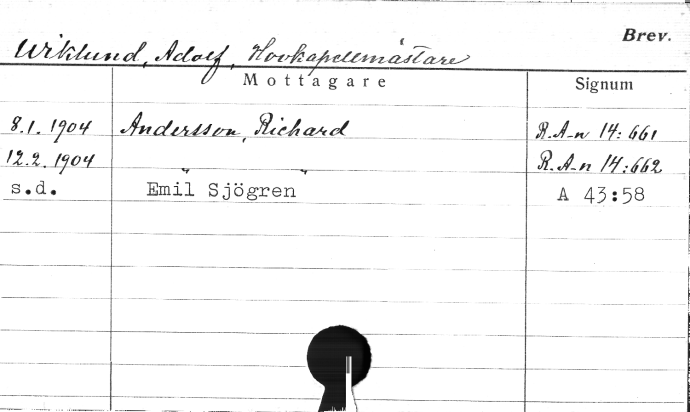 Brev.
Wiklund, Adolf, Hovkapellmästare
Mottagare Signum
8.1. 1904 Andersson, Richard R.A-n 14:661
12.2. 1904 " " R.A-n 14:662
s.d. Emil Sjögren A 43:58